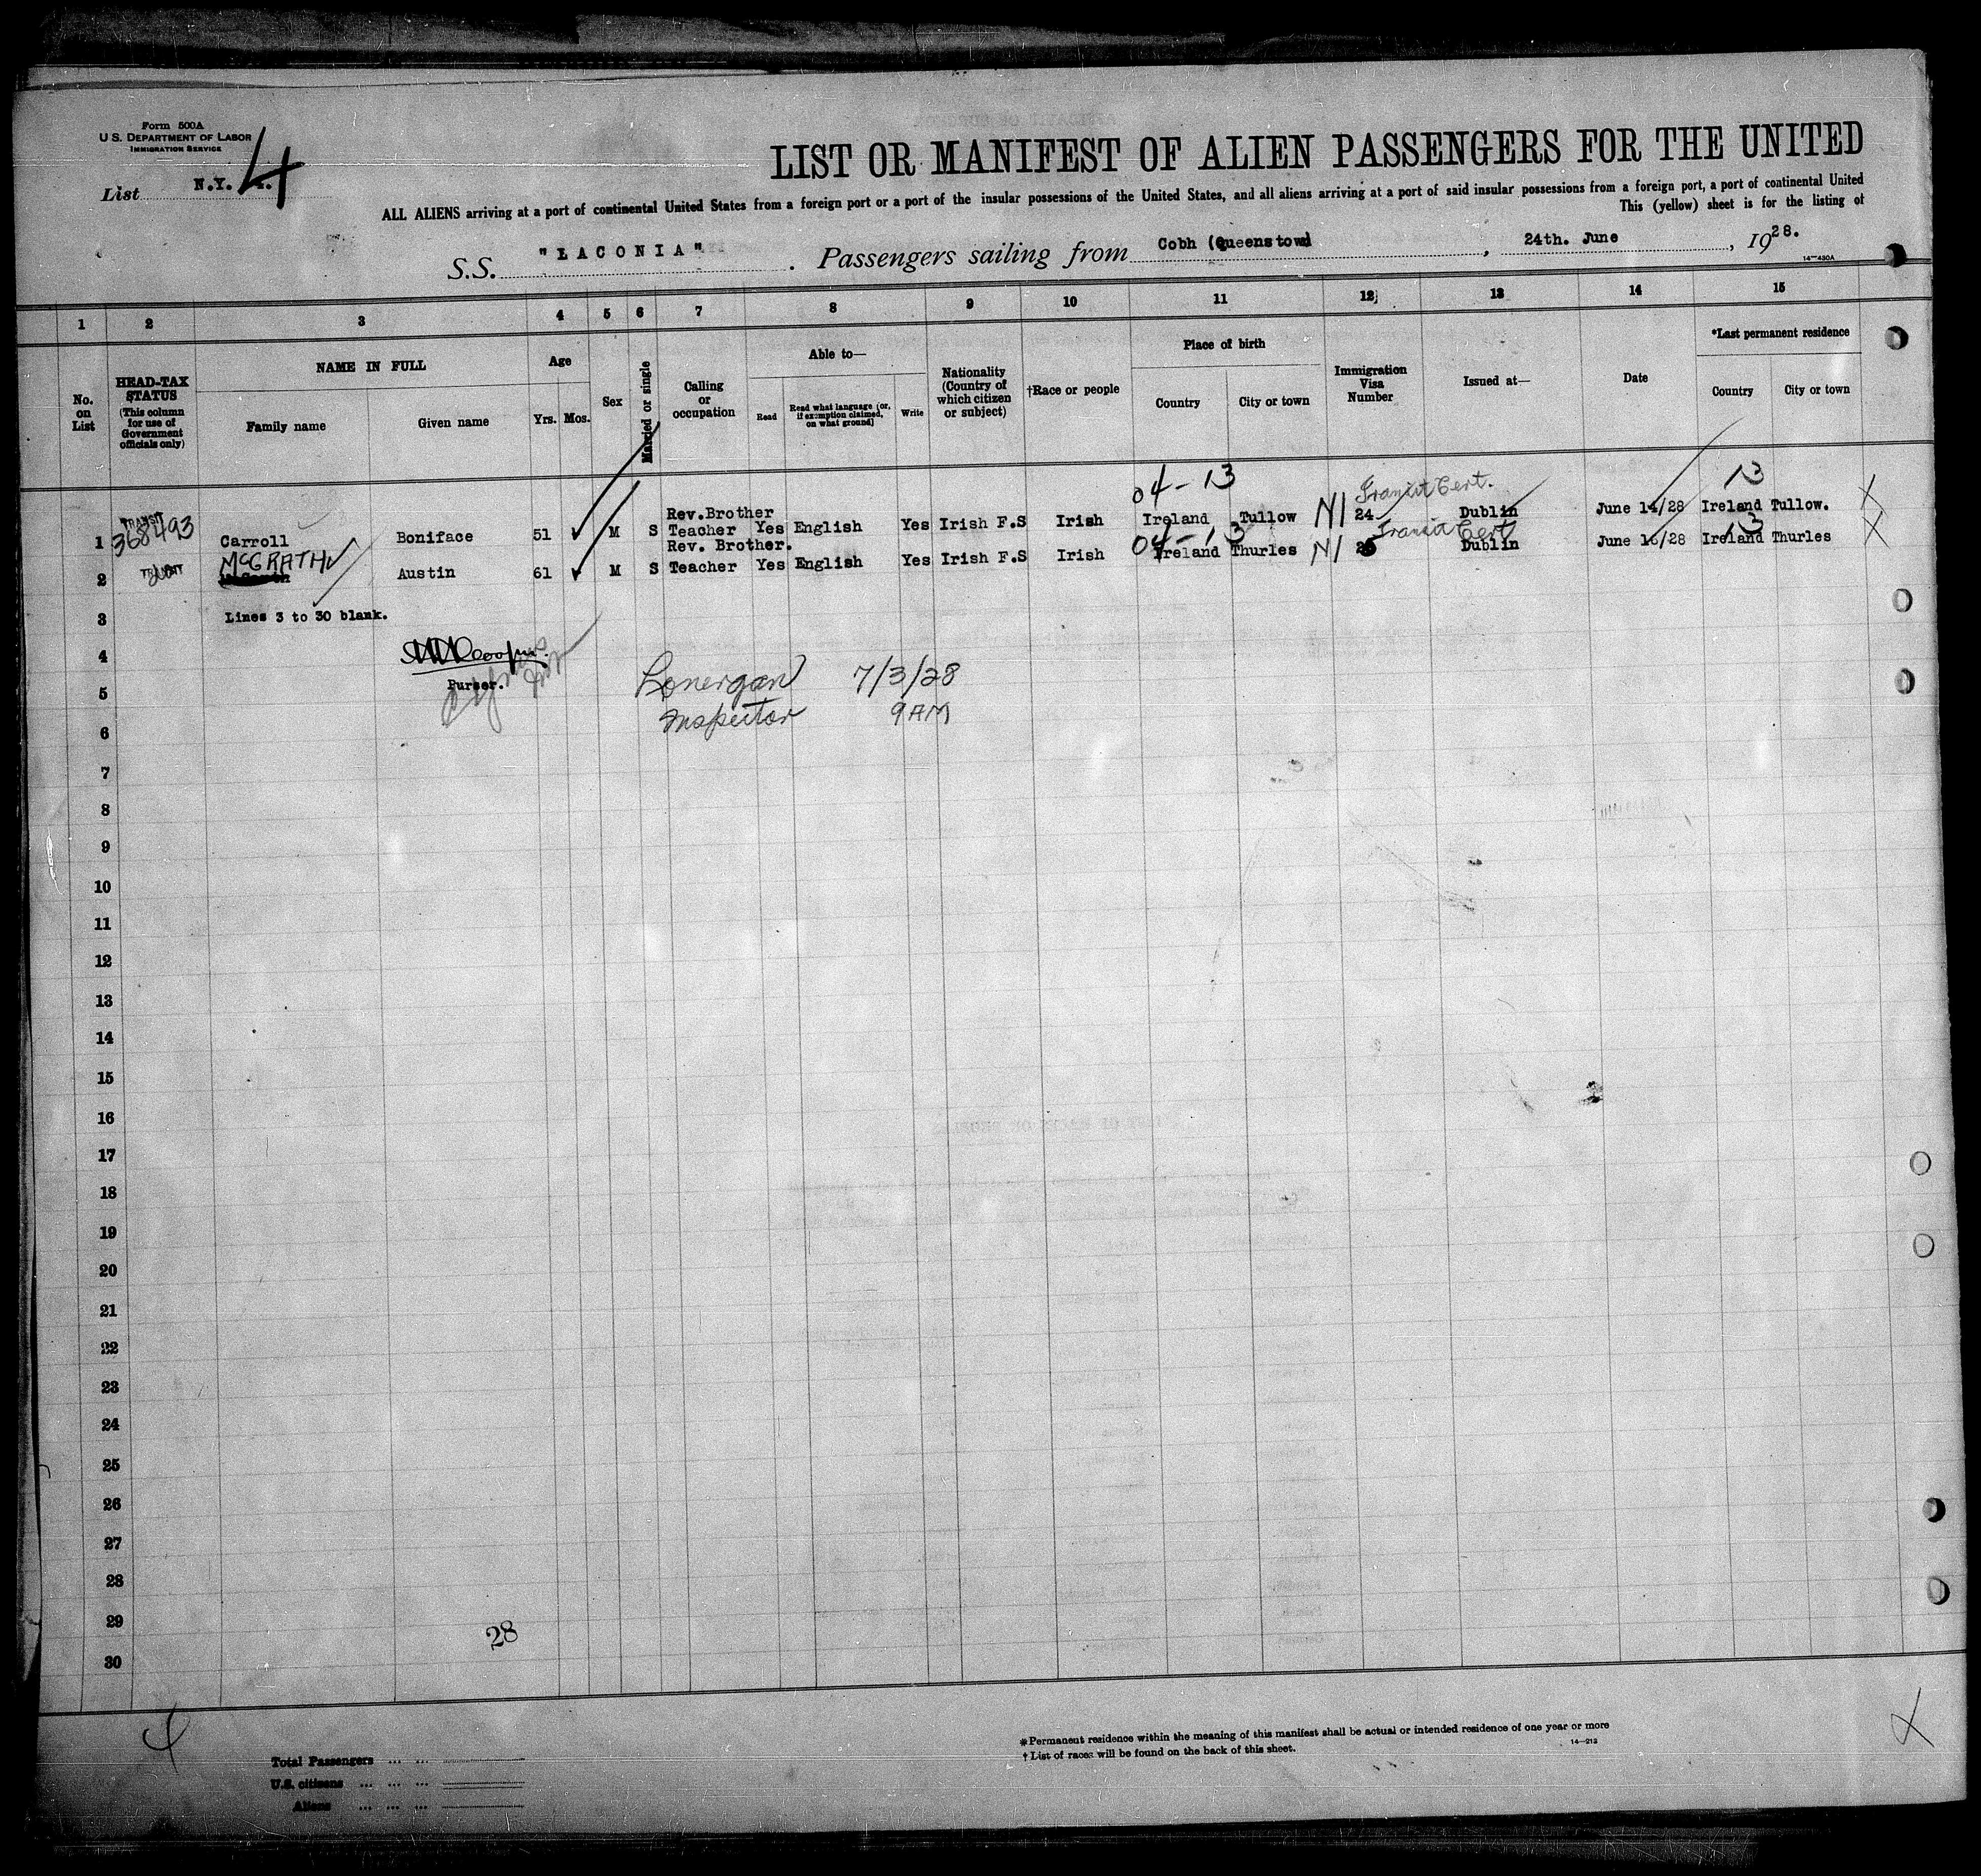 Form 500A
U. S. DEPARTMENT OF LABOR
IMMIGRATION SERVICE
List N.Y. 4
LIST OR MANIFEST OF ALIEN PASSENGERS FOR THE UNITED
ALL ALIENS arriving at a port of continental United States from a foreign port or a port of the insular possessions of the United States, and all aliens arriving at a port of said insular possessions from a foreign port, a port of continental United
This (yellow) sheet is for the listing of
S.S. "LACONIA" . Passengers sailing from Cobh (Queenstown) , 24th. June , 1928.
14—430A
1 2 3 4 5 6 7 8 9 10 11 12 13 14 15
No. on List
HEAD-TAX STATUS (This column for use of Government officials only)
NAME IN FULL
Family name Given name
Age
Yrs. Mos.
Sex
Married or single
Calling or occupation
Able to—
Read Read what language (or, if exemption claimed, on what ground) Write
Nationality (Country of which citizen or subject)
†Race or people
Place of birth
Country City or town
Immigration Visa Number
Issued at—
Date
*Last permanent residence
Country City or town
04-13 Transit Cert. 13
TRANSIT Rev.Brother
1 368493 Carroll Boniface 51 M S Teacher Yes English Yes Irish F.S Irish Ireland Tullow NI 24 Dublin June 14/28 Ireland Tullow. X
04-13 Transit Cert 13
TRANSIT Rev. Brother.
2 McGRATH Austin 61 M S Teacher Yes English Yes Irish F.S Irish Ireland Thurles NI Dublin June 16/28 Ireland Thurles X
3 Lines 3 to 30 blank.
4
5 Purser. Lonergan 7/3/28
6 Inspector 9 AM
7
8
9
10
11
12
13
14
15
16
17
18
19
20
21
22
23
24
25
26
27
28
29 28
30
4 X
*Permanent residence within the meaning of this manifest shall be actual or intended residence of one year or more
†List of races will be found on the back of this sheet.
14—212
Total Passengers ... ...
U.S. citizens ... ... ...
Aliens ... ... ...